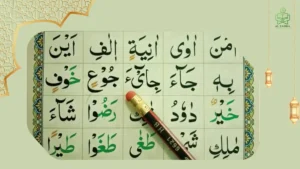 اٰمَنَ اَوٰى اٰنِيَةٍ اٖلٰفِ اَيْنَ
بِهٖ جَآءَ جِآىْءَ جُوْعٍ خَوْفٍ
خَيْرٌ دَاوٗدُ رَضُوْا شَآءَ
مٰلِكِ طَغٰى طَغَوْا طَيْرًا